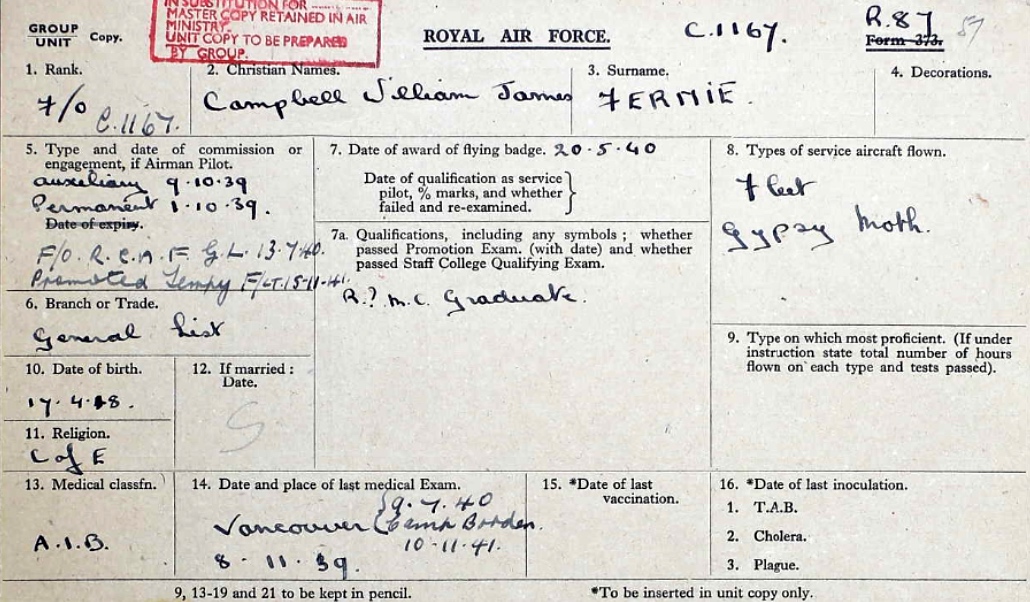 IN SUBSTITUTION FOR
MASTER COPY RETAINED IN AIR
MINISTRY
UNIT COPY TO BE PREPARED
BY GROUP.
GROUP
UNIT Copy.
ROYAL AIR FORCE.
C.1167.
R.87
Form 373.
1. Rank.
F/O C.1167.
2. Christian Names.
Campbell William James
3. Surname.
FERNIE.
4. Decorations.
5. Type and date of commission or
engagement, if Airman Pilot.
auxiliary 9.10.39
Permanent 1.10.39.
Date of expiry.
F/O. R.C.A.F. G.L. 13.7.40.
Promoted Tempy F/LT. 15-11-41.
6. Branch or Trade.
General List
7. Date of award of flying badge. 20.5.40
Date of qualification as service
pilot, % marks, and whether
failed and re-examined.
7a. Qualifications, including any symbols; whether
passed Promotion Exam. (with date) and whether
passed Staff College Qualifying Exam.
R.? M.C. Graduate.
8. Types of service aircraft flown.
Fleet
Gypsy Moth.
9. Type on which most proficient. (If under
instruction state total number of hours
flown on each type and tests passed).
10. Date of birth.
17.4.18.
11. Religion.
C of E
12. If married:
Date.
S
13. Medical classfn.
A.I.B.
14. Date and place of last medical Exam.
9.7.40
Vancouver (Camp Borden.
10-11-41.
8-11-39.
15. *Date of last
vaccination.
16. *Date of last inoculation.
1. T.A.B.
2. Cholera.
3. Plague.
9, 13-19 and 21 to be kept in pencil.
*To be inserted in unit copy only.